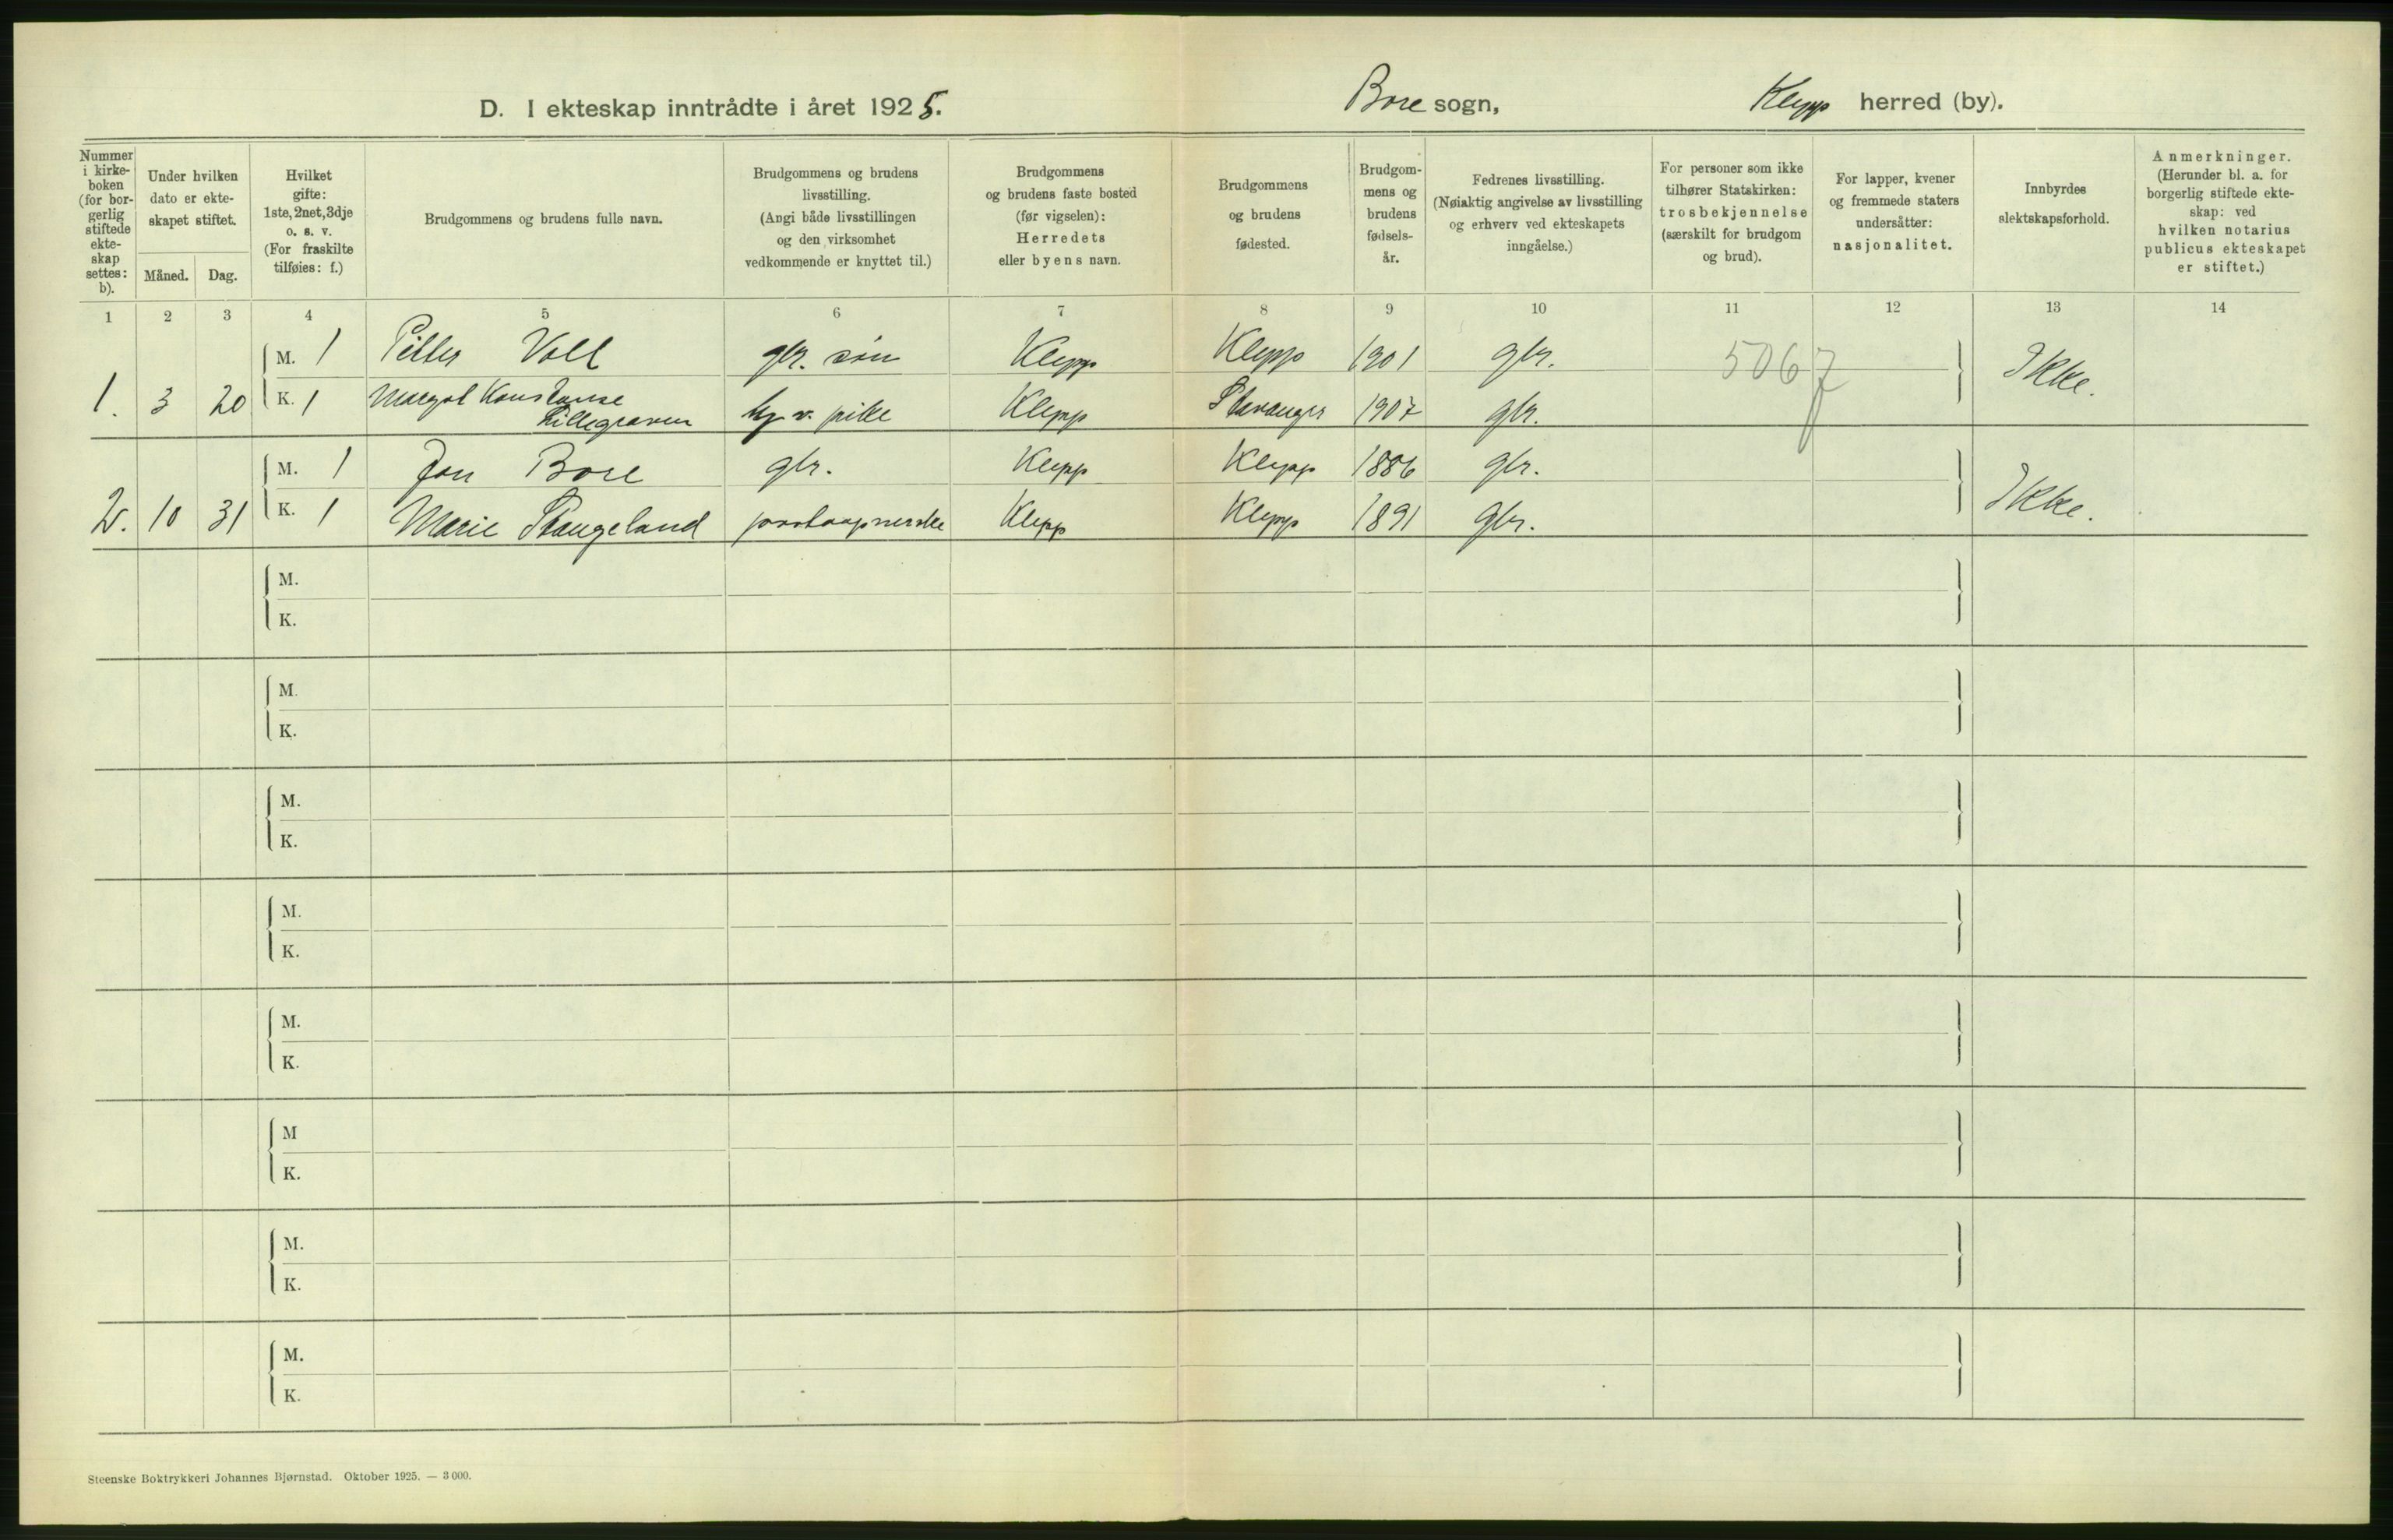 D. I ekteskap inntrådte i året 1925.
Bore sogn, Klepp herred (by).
Nummer i kirke- boken (for bor- gerlig stiftede ekte- skap settes: b).
Under hvilken dato er ekte- skapet stiftet.
Måned. Dag.
Hvilket gifte: 1ste, 2net, 3dje o. s. v. (For fraskilte tilføies: f.)
Brudgommens og brudens fulle navn.
Brudgommens og brudens livsstilling. (Angi både livsstillingen og den virksomhet vedkommende er knyttet til.)
Brudgommens og brudens faste bosted (før vigselen): Herredets eller byens navn.
Brudgommens og brudens fødested.
Brudgom- mens og brudens fødsels- år.
Fedrenes livsstilling. (Nøiaktig angivelse av livsstilling og erhverv ved ekteskapets inngåelse.)
For personer som ikke tilhører Statskirken: trosbekjennelse (særskilt for brudgom og brud).
For lapper, kvener og fremmede staters undersåtter: nasjonalitet.
Innbyrdes slektskapsforhold.
Anmerkninger. (Herunder bl. a. for borgerlig stiftede ekte- skap: ved hvilken notarius publicus ekteskapet er stiftet.)
1 2 3 4 5 6 7 8 9 10 11 12 13 14
M. 1 Petter Voll gbr. søn Klepp Klepp 1901 gbr. 5067 Ikke.
1. 3 20 K. 1 Margot Konstanse
Lillegraven pike Klepp Stavanger 1907 gbr.
M. 1 Jon Bore gbr. Klepp Klepp 1886 gbr. Ikke.
2. 10 31 K. 1 Marie Stangeland postaapnerske Klepp Klepp 1891 gbr.
M.
K.
M.
K.
M.
K.
M.
K.
M.
K.
M
K.
M.
K.
M.
K.
Steenske Boktrykkeri Johannes Bjørnstad. Oktober 1925. — 3 000.